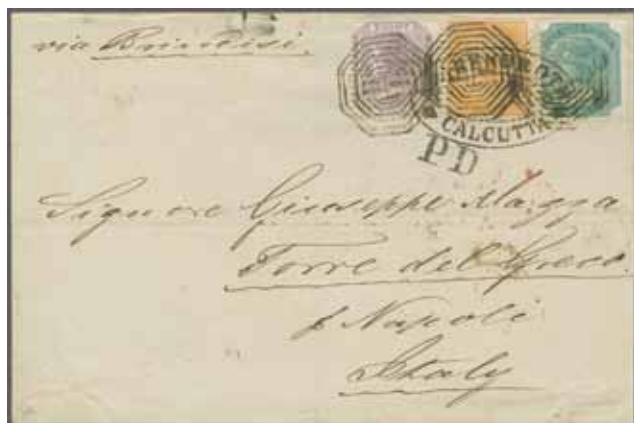 via Brindisi.
CALCUTTA
PD
Signore Giuseppe Mazza
Torre del Greco
p Napoli
Italy